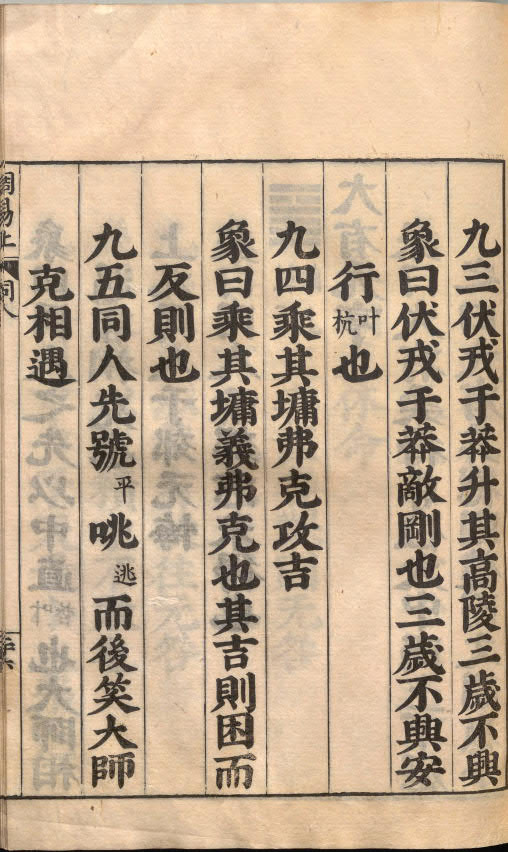 九三伏戎于莽升其高陵三歲不興
象曰伏戎于莽敵剛也三歲不興安
行叶杭也
九四乘其墉弗克攻吉
象曰乘其墉義弗克也其吉則困而
反則也
九五同人先號平咷逃而後笑大師
克相遇
周易上 同人